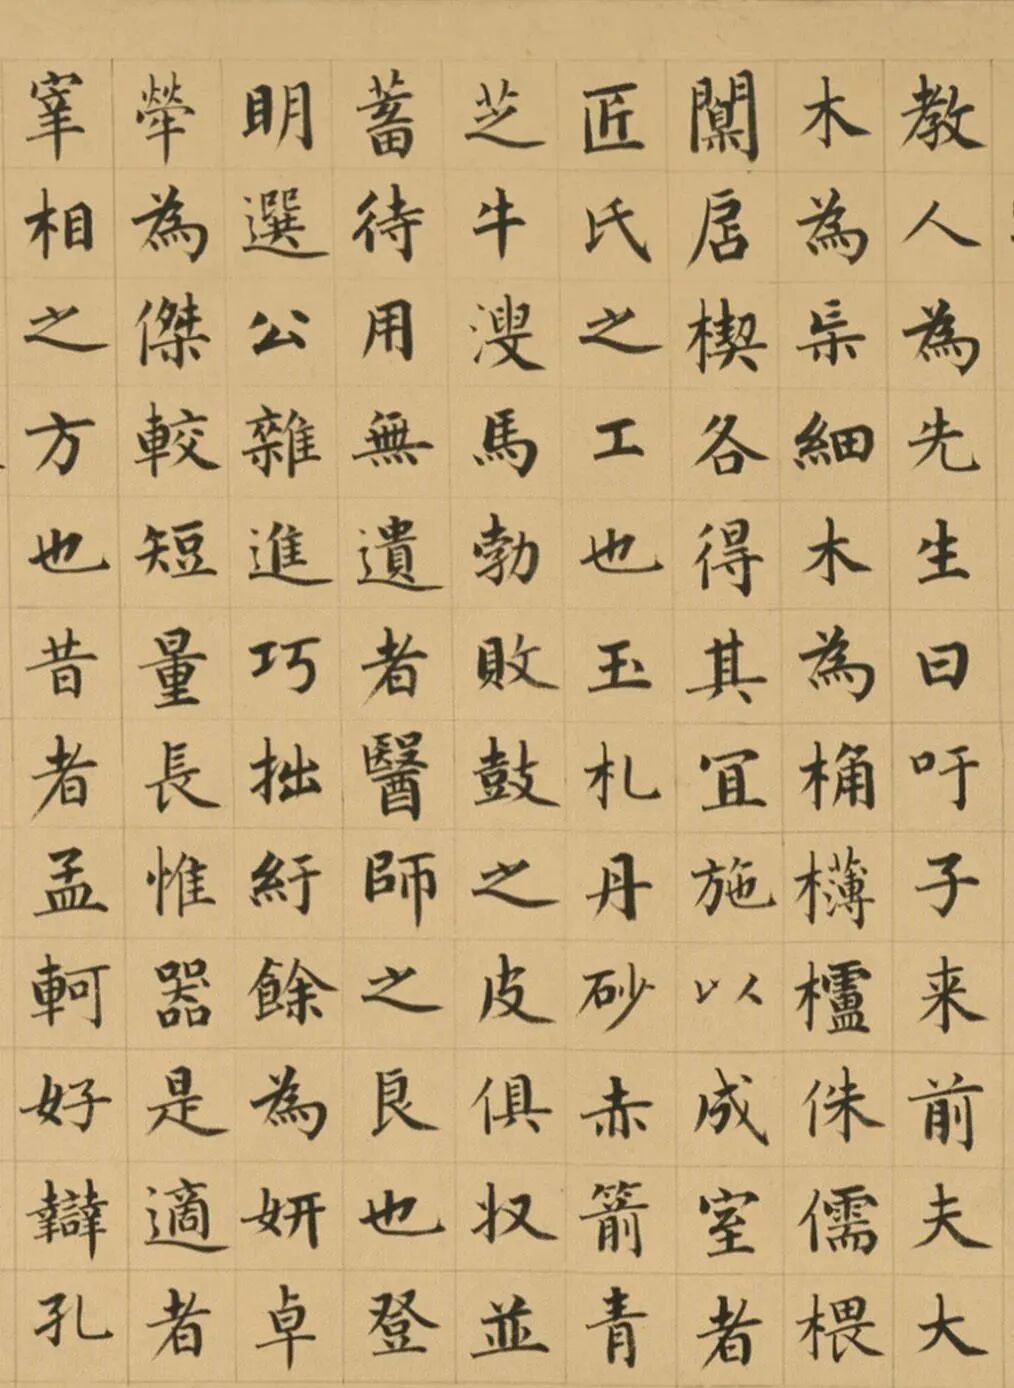 教人為先生曰吁子来前夫大
木為杗細木為桷欂櫨侏儒椳
闑扂楔各得其冝施以成室者
匠氏之工也玉札丹砂赤箭青
芝牛溲馬勃敗鼓之皮俱収並
蓄待用無遺者醫師之良也登
明選公雜進巧拙紆餘為妍卓
犖為傑較短量長惟器是適者
宰相之方也昔者孟軻好辯孔